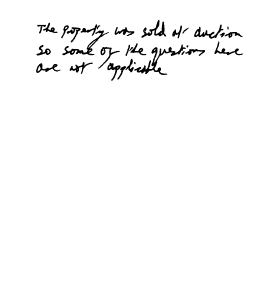 The property was sold at auction
so some of the questions here
are not applicable